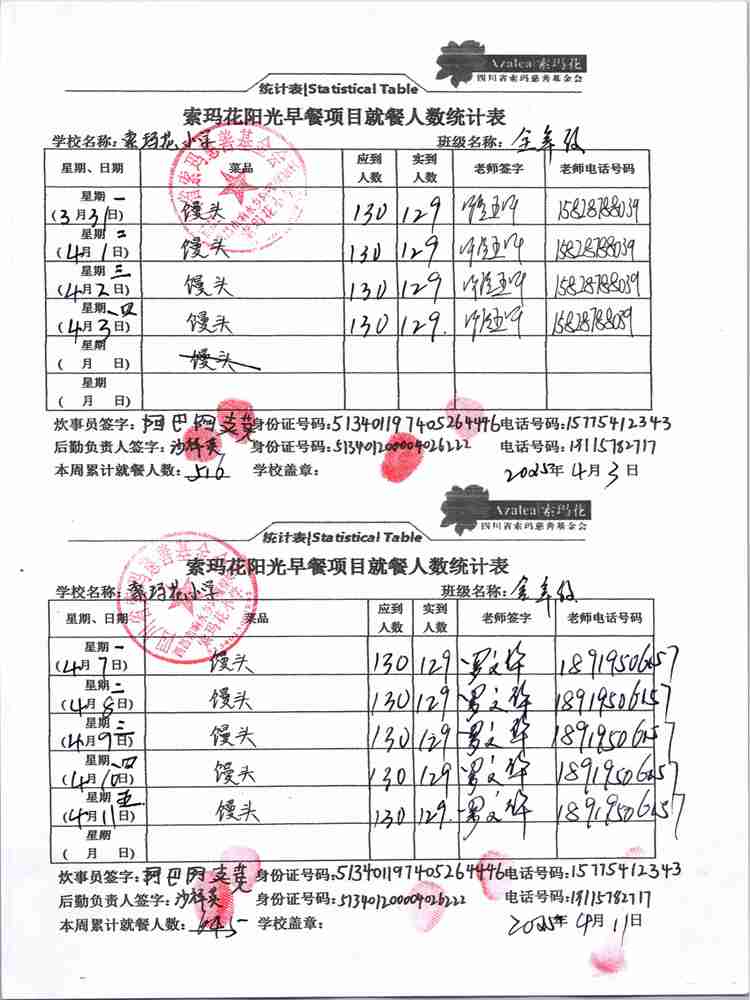 Azalea 索玛花
四川省索玛慈善基金会
统计表|Statistical Table
索玛花阳光早餐项目就餐人数统计表
学校名称：索玛花小学 班级名称：全年级
星期、日期 菜品 应到人数 实到人数 老师签字 老师电话号码
星期一 (3月31日) 馒头 130 129 15828788039
星期二 (4月1日) 馒头 130 129 15828788039
星期三 (4月2日) 馒头 130 129 15828788039
星期四 (4月3日) 馒头 130 129. 15828788039
星期 ( 月 日) 馒头
星期 ( 月 日)
炊事员签字：阿巴阿支莫 身份证号码：513401197405264446 电话号码：15775412343
后勤负责人签字：沙祥英 身份证号码：513401200004026222 电话号码：18115782717
本周累计就餐人数：516 学校盖章： 2025年4月3日
Azalea 索玛花
四川省索玛慈善基金会
统计表|Statistical Table
索玛花阳光早餐项目就餐人数统计表
学校名称：索玛花小学 班级名称：全年级
星期、日期 菜品 应到人数 实到人数 老师签字 老师电话号码
星期一 (4月7日) 馒头 130 129 18919506157
星期二 (4月8日) 馒头 130 129 18919506157
星期三 (4月9日) 馒头 130 129 18919506157
星期四 (4月10日) 馒头 130 129 18919506157
星期五 (4月11日) 馒头 130 129. 18919506157
星期 ( 月 日)
炊事员签字：阿巴阿支莫 身份证号码：513401197405264446 电话号码：15775412343
后勤负责人签字：沙祥英 身份证号码：513401200004026222 电话号码：18115782717
本周累计就餐人数：645 学校盖章： 2025年4月11日